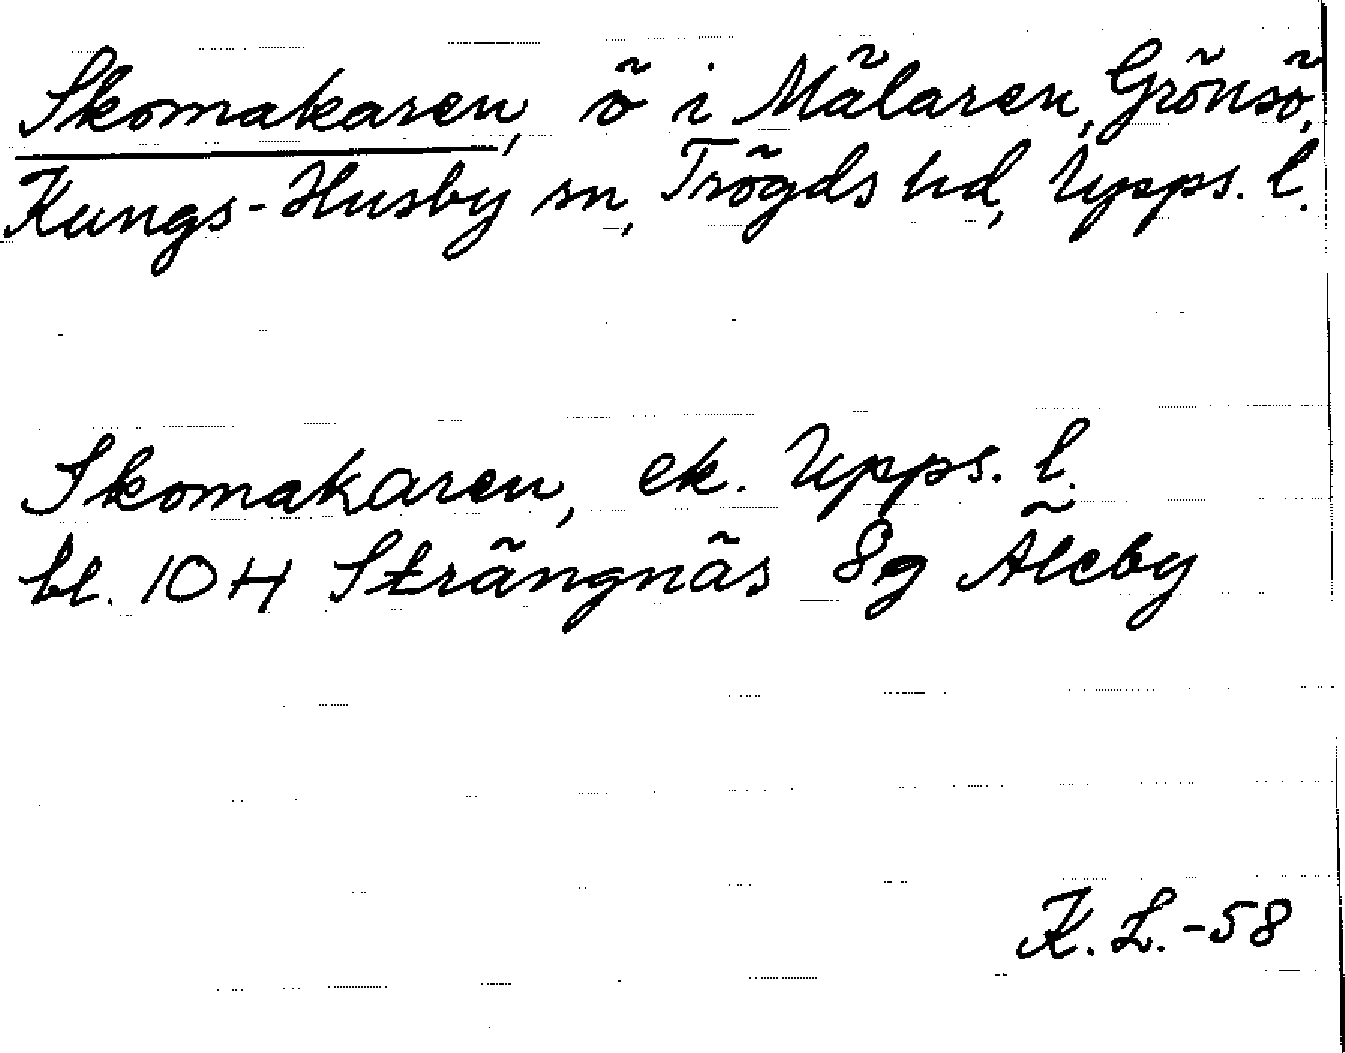 Skomakaren, ö i Mälaren, Grönsö,
Kungs-Husby sn, Trögds hd, Upps. l.
Skomakaren, ek. Upps. l.
bl. 10 H Strängnäs 8g Äleby
K. L. -58